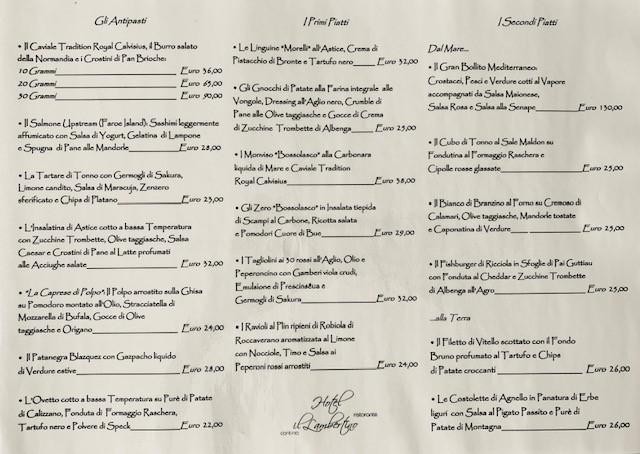 Gli Antipasti
• Il Caviale Tradition Royal Calvisius, il Burro salato
della Normandia e i Crostini di Pan Brioche:
10 Grammi Euro 36,00
20 Grammi Euro 65,00
30 Grammi Euro 90,00
• Il Salmone Upstream (Faroe Island): Sashimi leggermente
affumicato con Salsa di Yogurt, Gelatina di Lampone
e Spugna di Pane alle Mandorle Euro 28,00
• La Tartare di Tonno con Germogli di Sakura,
Limone candito, Salsa di Maracuja, Zenzero
sferificato e Chips di Platano Euro 25,00
• L'Insalatina di Astice cotto a bassa Temperatura
con Zucchine Trombette, Olive taggiasche, Salsa
Caesar e Crostini di Pane al Latte profumati
alle Acciughe salate Euro 32,00
• "La Caprese di Polpo": Il Polpo arrostito sulla Ghisa
su Pomodoro montato all'Olio, Stracciatella di
Mozzarella di Bufala, Gocce di Olive
taggiasche e Origano Euro 24,00
• Il Patanegra Blazquez con Gazpacho liquido
di Verdure estive Euro 28,00
• L'Ovetto cotto a bassa Temperatura su Purè di Patate
di Calizzano, Fonduta di Formaggio Raschera,
Tartufo nero e Polvere di Speck Euro 22,00
I Primi Piatti
• Le Linguine "Morelli" all'Astice, Crema di
Pistacchio di Bronte e Tartufo nero Euro 32,00
• Gli Gnocchi di Patate alla Farina integrale alle
Vongole, Dressing all'Aglio nero, Crumble di
Pane alle Olive taggiasche e Gocce di Crema
di Zucchine Trombette di Albenga Euro 25,00
• I Monviso "Bossolasco" alla Carbonara
liquida di Mare e Caviale Tradition
Royal Calvisius Euro 38,00
• Gli Zero "Bossolasco" in Insalata tiepida
di Scampi al Carbone, Ricotta salata
e Pomodori Cuore di Bue Euro 29,00
• I Tagliolini ai 30 rossi all'Aglio, Olio e
Peperoncino con Gamberi viola crudi,
Emulsione di Prescinsêua e
Germogli di Sakura Euro 32,00
• I Ravioli al Plin ripieni di Robiola di
Roccaverano aromatizzata al Limone
con Nocciole, Timo e Salsa ai
Peperoni rossi arrostiti Euro 24,00
Hotel
ristorante
il Lambertino
cantina
I Secondi Piatti
Dal Mare...
• Il Gran Bollito Mediterraneo:
Crostacei, Pesci e Verdure cotti al Vapore
accompagnati da Salsa Maionese,
Salsa Rosa e Salsa alla Senape Euro 130,00
• Il Cubo di Tonno al Sale Maldon su
Fondutina al Formaggio Raschera e
Cipolle rosse glassate Euro 25,00
• Il Bianco di Branzino al Forno su Cremoso di
Calamari, Olive taggiasche, Mandorle tostate
e Caponatina di Verdure Euro 25,00
• Il Fishburger di Ricciola in Sfoglie di Pai Guttiau
con Fonduta al Cheddar e Zucchine Trombette
di Albenga all'Agro Euro 25,00
...alla Terra
• Il Filetto di Vitello scottato con il Fondo
Bruno profumato al Tartufo e Chips
di Patate croccanti Euro 26,00
• Le Costolette di Agnello in Panatura di Erbe
liguri con Salsa al Pigato Passito e Purè di
Patate di Montagna Euro 26,00